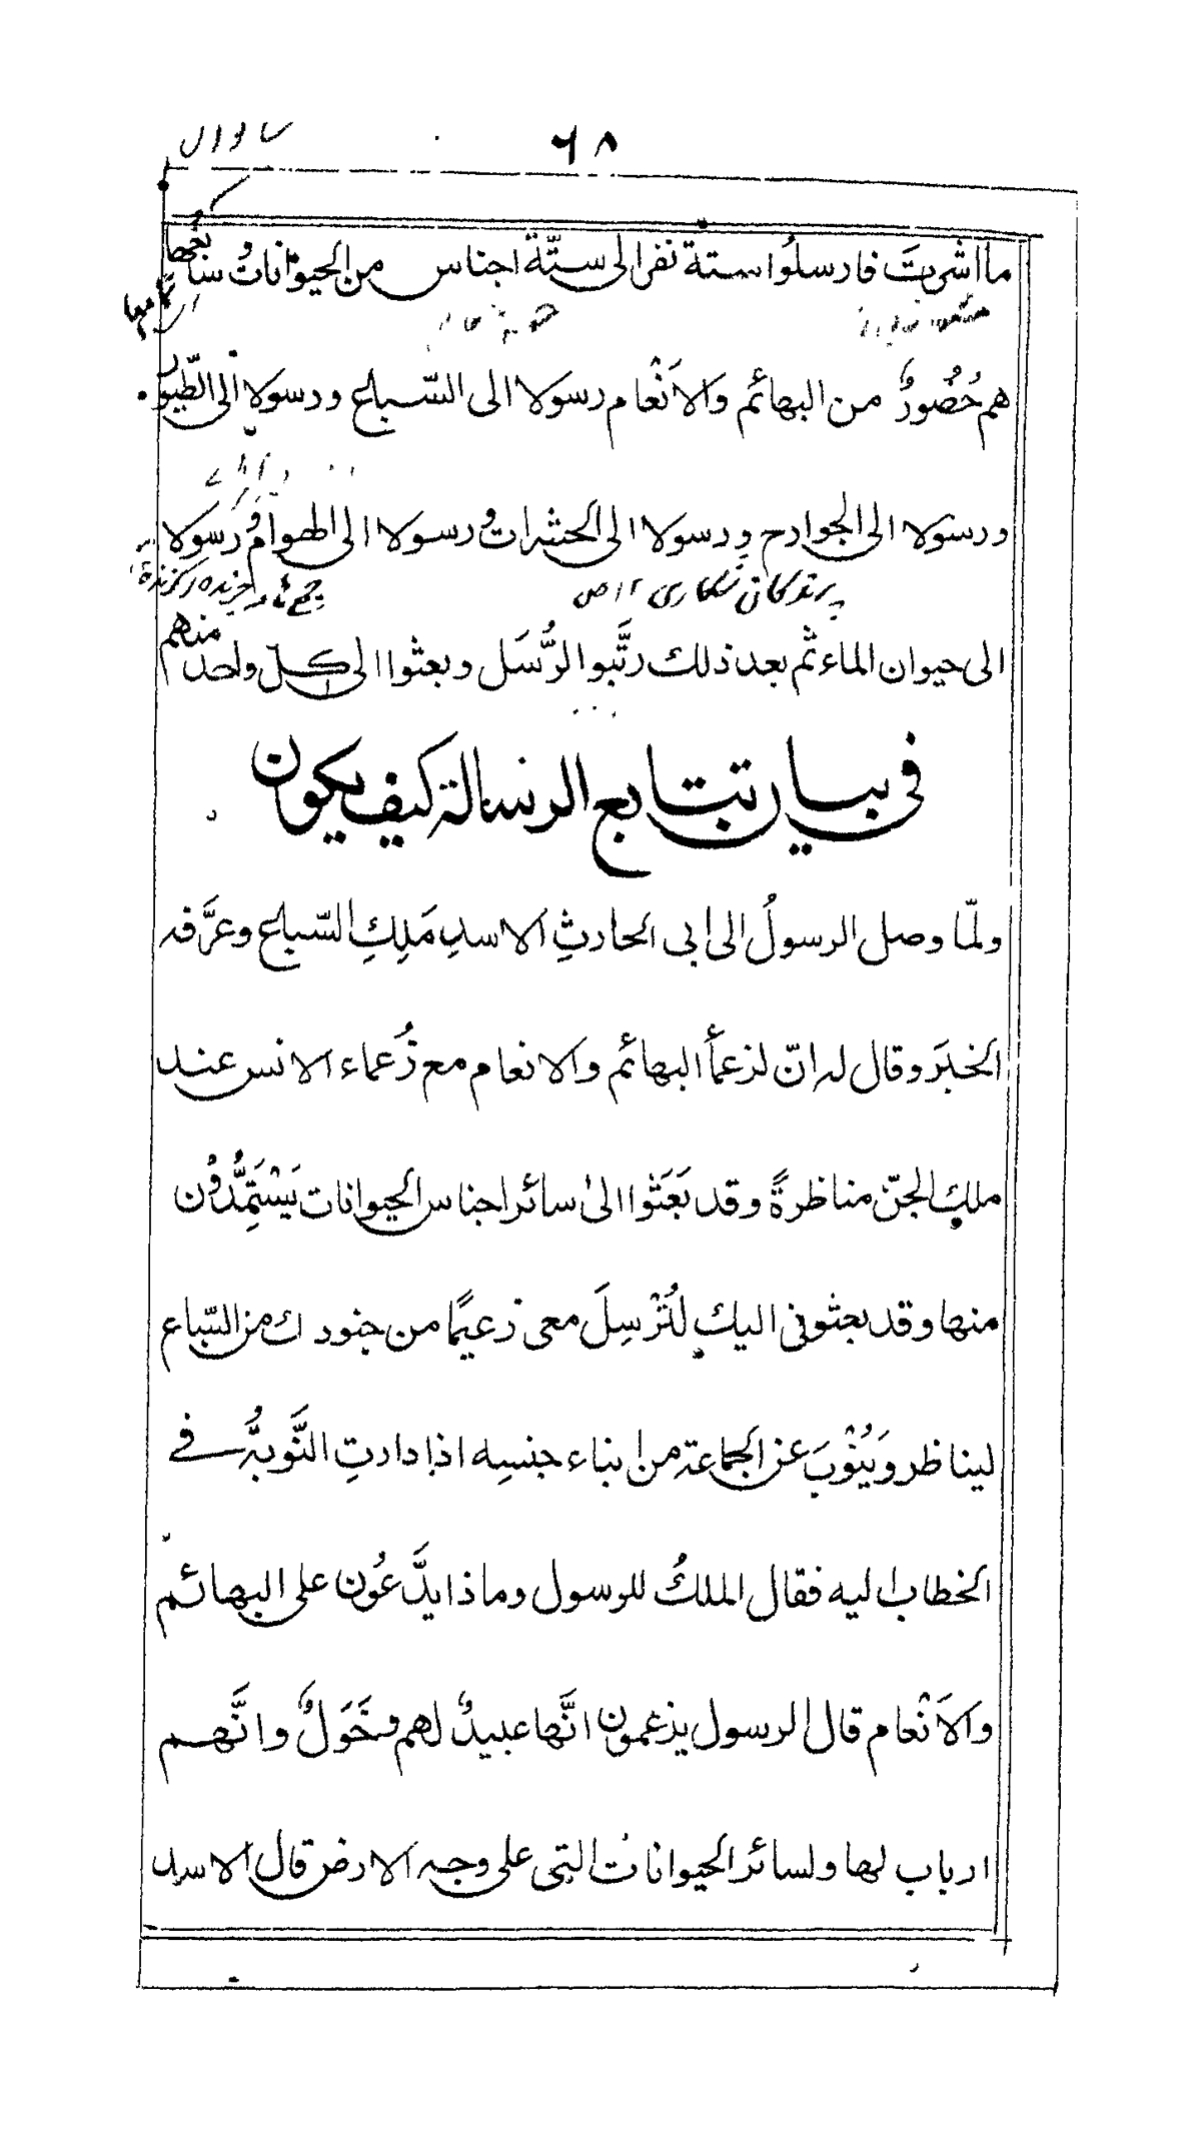 ٦٨
ما اشرت فارسلوا ستة نفر الى ستّة اجناس من الحيوانات سابعها
هم حُضُورٌ من البهائم والاَنْعام رسولا الى السّباع ورسولا الى الطّيور
ورسولا الى الجوارح ورسولا الى الحشرات ورسولا الى الهوام ورسولا
پرندگان شکاری ١٢ ص
الى حيوان الماء ثم بعد ذلك رتَّبوا الرُّسَل وبعثوا الى كلّ واحد منهم
فى بيان تتابع الرسالة كيف يكون
ولمّا وصل الرسولُ الى ابى الحارثِ الاسدِ مَلِكِ السّباع وعرَّفه
الخبرَ وقال له انّ لزعمأ البهائم والانعام مع زُعماء الانس عند
ملكِ الجنّ مناظرةً وقد بَعَثْوا الىٰ سائر اجناس الحيوانات يَسْتَمِدُّوْن
منها وقد بعثونى اليك لتُرْسِلَ معى زعيمًا من جنودك من السّباع
ليناظر وَيَنُوْبَ عن الجماعة من ابناء جنسِه اذا دارتِ النَّوبةُ فے
الخطاب اليه فقال الملكُ للرسول وماذا يدَّعُون على البهائم
والاَنْعام قال الرسول يزعمون انَّها عبيدٌ لهم وخَوَلٌ وانَّهم
ارباب لها ولسائر الحيوانات التى على وجه الارض قال الاسد